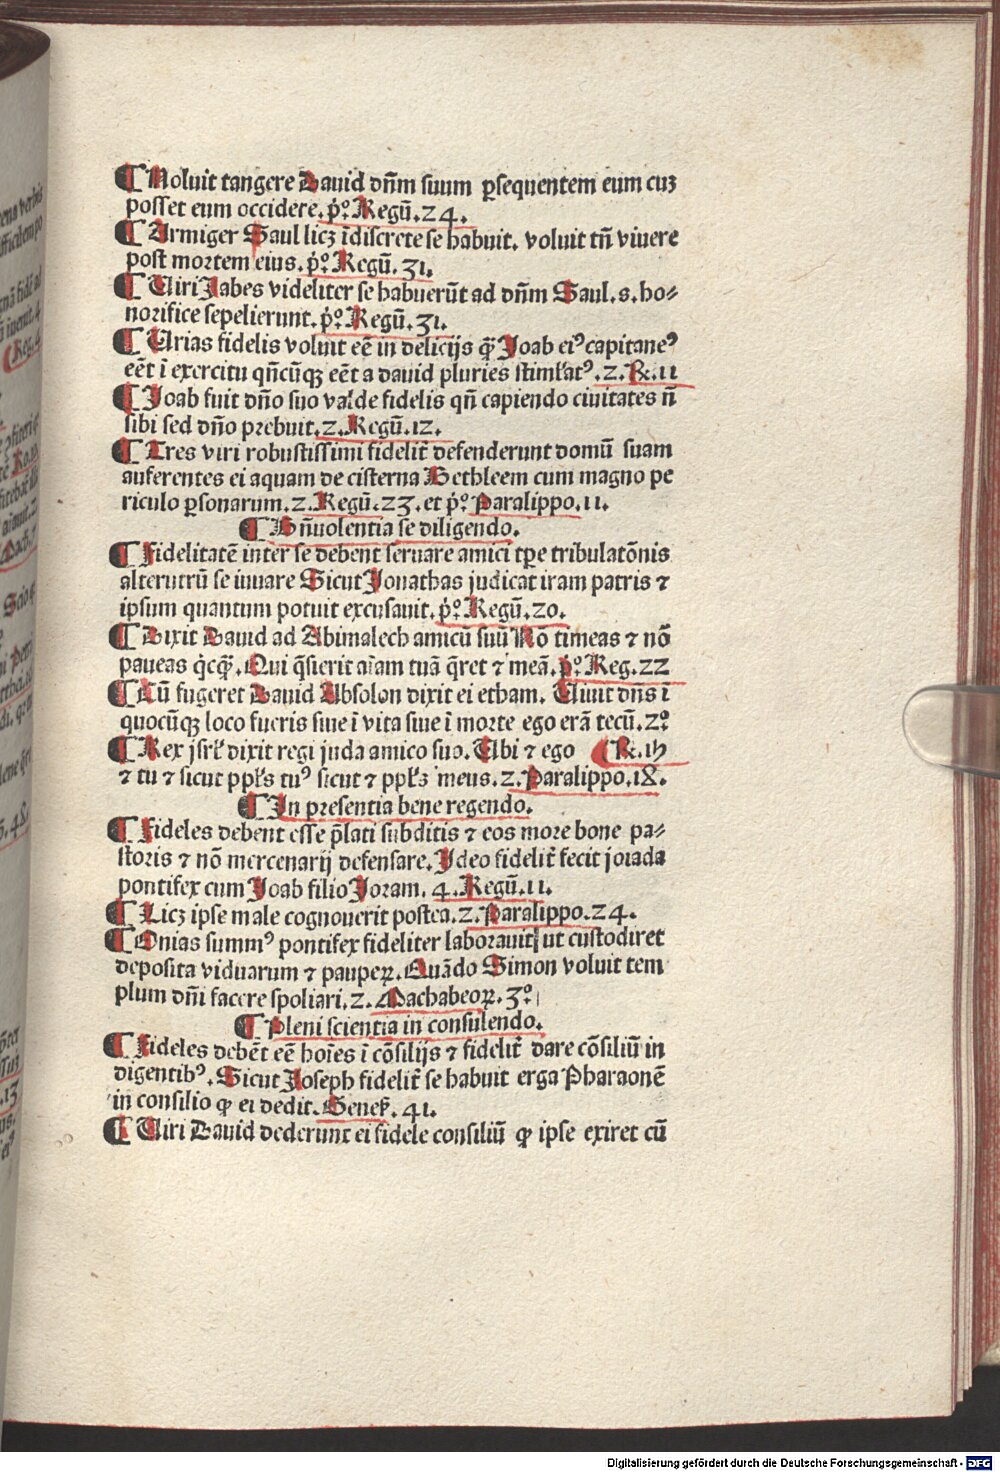 ¶ Noluit tangere Dauid dn̄m suum ꝑsequentem eum cuꝫ
posset eum occidere. p̊º. Regū. 24.
¶ Armiger Saul licꝫ īdiscrete se habuit. voluit tn̄ viuere
post mortem eius. p̊º. Regū. 31.
¶ Uiri Jabes videliter se habuerūt ad dn̄m Saul. s. ho⸗
norifice sepelierunt. p̊º. Regū. 31.
¶ Urias fidelis voluit eē in delicijs qͣꝫ Joab eiꝰ capitaneꝰ
eēt ī exercitu qn̄cūqꝫ eēt a dauid pluries stiml̓atꝰ. 2. R. 11
¶ Joab fuit dn̄o suo valde fidelis qn̄ capiendo ciuitates n̄
sibi sed dn̄o prebuit. 2. Regū. 12.
¶ Tres viri robustissimi fidelit̓ defenderunt domū suam
auferentes ei aquam de cisterna Bethleem cum magno pe
riculo ꝑsonarum. 2. Regū. 23. et p̊º. Paralippo. 11.
¶ Bn̄uolentia se diligendo.
¶ Fidelitatē inter se debent seruare amici tꝑe tribulatōnis
alterutrū se iuuare Sicut Jonathas judicat iram patris ⁊
ipsum quantum potuit excusauit. p̊º. Regū. 20.
¶ Dixit Dauid ad Abimalech amicū suū Nō timeas ⁊ nō
paueas q̇cqͣꝫ. Qui q̄sierit aīam tuā q̄ret ⁊ meā. p̊º. Reg. 22
¶ Cū fugeret Dauid Absolon dixit ei etham. Uiuit dn̄s ī
quocūqꝫ loco fueris siue ī vita siue ī morte ego erā tecū. 2º
¶ Rex jsrl̓ dixit regi juda amico suo. Ubi ⁊ ego (R. 15
⁊ tu ⁊ sicut ppl̓s tuꝰ sicut ⁊ ppl̓s meus. 2. Paralippo. 18.
¶ In presentia bene regendo.
¶ Fideles debent esse p̄lati subditis ⁊ eos more bone pa⸗
storis ⁊ nō mercenarij defensare. Jdeo fidelit̓ fecit joiada
pontifex cum Joab filio Joram. 4. Regū. 11.
¶ Licꝫ ipse male cognouerit postea. 2. Paralippo. 24.
¶ Onias summꝰ pontifex fideliter laborauit ut custodiret
deposita viduarum ⁊ pauperꝝ. Quādo Simon voluit tem
plum dn̄i facere spoliari. 2. Machabeoꝝ. 3º
¶ Pleni scientia in consulendo.
¶ Fideles debēt eē hoīes ī cōsilijs ⁊ fidelit̓ dare cōsiliū in
digentibꝰ. Sicut Joseph fidelit̓ se habuit erga Pharaonē
in consilio ꝙ ei dedit. Genes̓. 41.
¶ Uiri Dauid dederunt ei fidele consiliū ꝙ ipse exiret cū
Digitalisierung gefördert durch die Deutsche Forschungsgemeinschaft - DFG